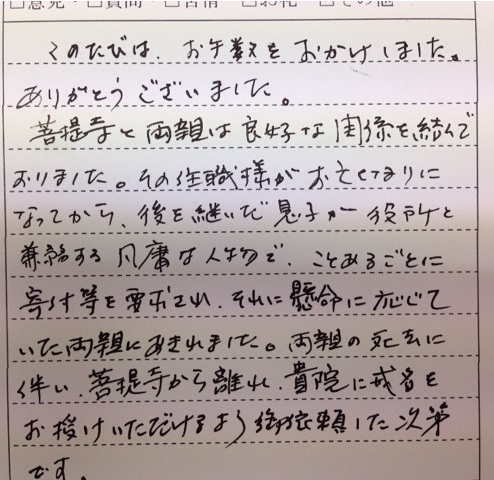 □意見・□質問・□苦情・□お礼・□その他
このたびは、お手数をおかけしました。
ありがとうございました。
菩提寺と両親は良好な関係を結んで
おりました。その住職様がお亡くなりに
なってから、後を継いだ息子が役所と
兼務する凡庸な人物で、ことあるごとに
寄付等を要求され、それに懸命に応じて
いた両親にあきれました。両親の死去に
伴い、菩提寺から離れ、貴院に戒名を
お授けいただけるよう御依頼した次第
です。